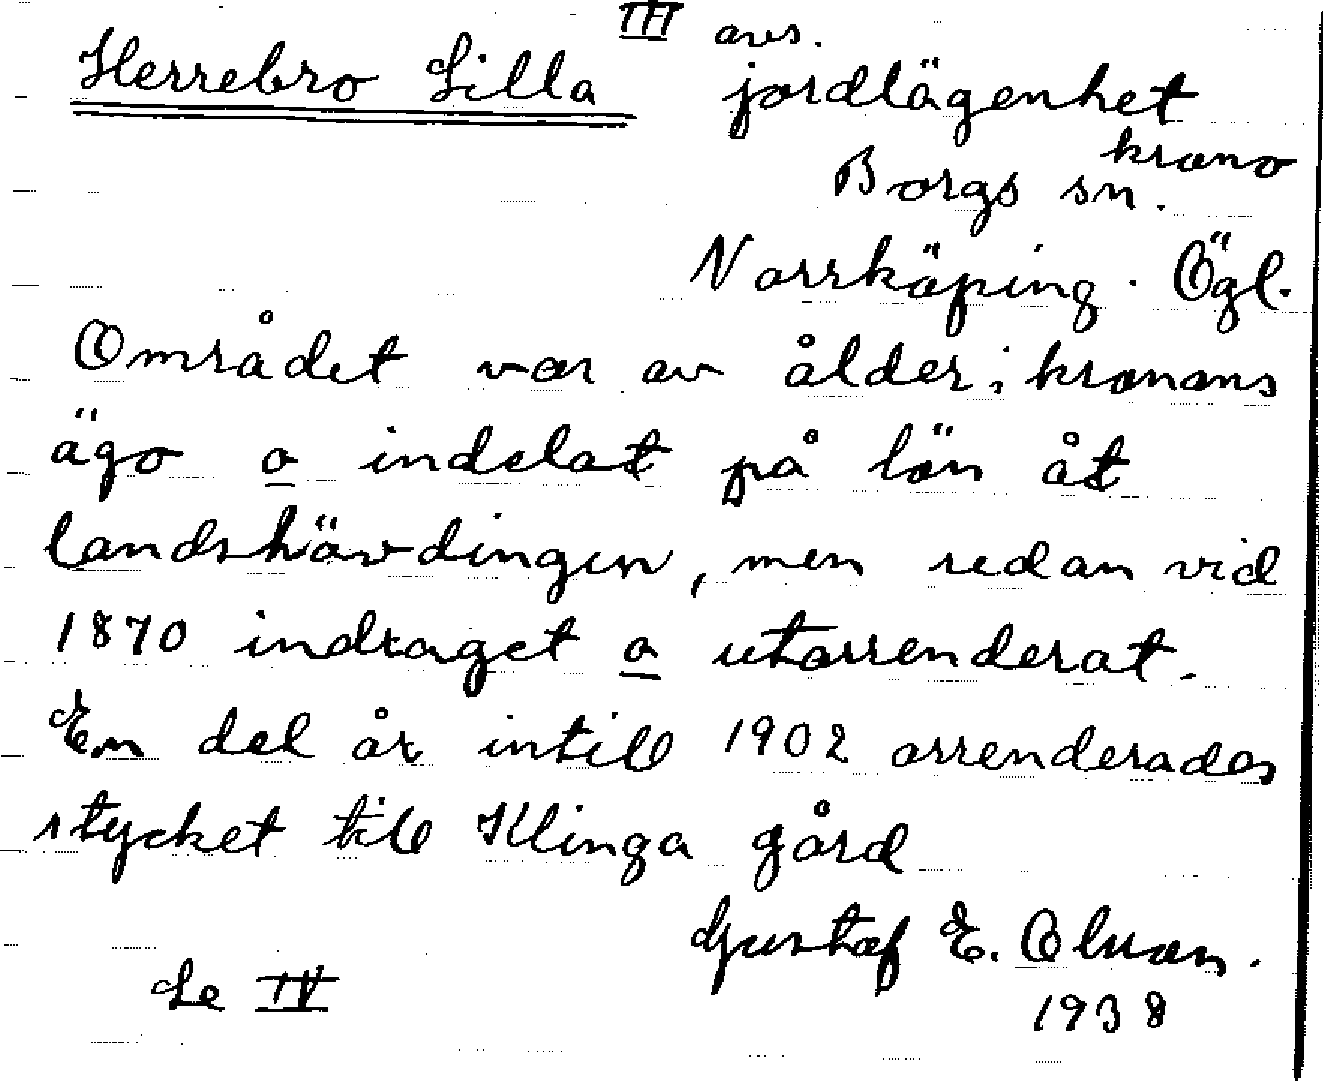 III avs.
Herrebro Lilla jordlägenhet
krono
Borgs sn.
Norrköping. Ögl.
Området var av ålder i kronans
ägo o indelat på lön åt
landshövdingen, men redan vid
1870 indraget o utarrenderat.
En del år intill 1902 arrenderades
stycket till Klinga gård
Gustaf E. Olsson.
Se IV
1938